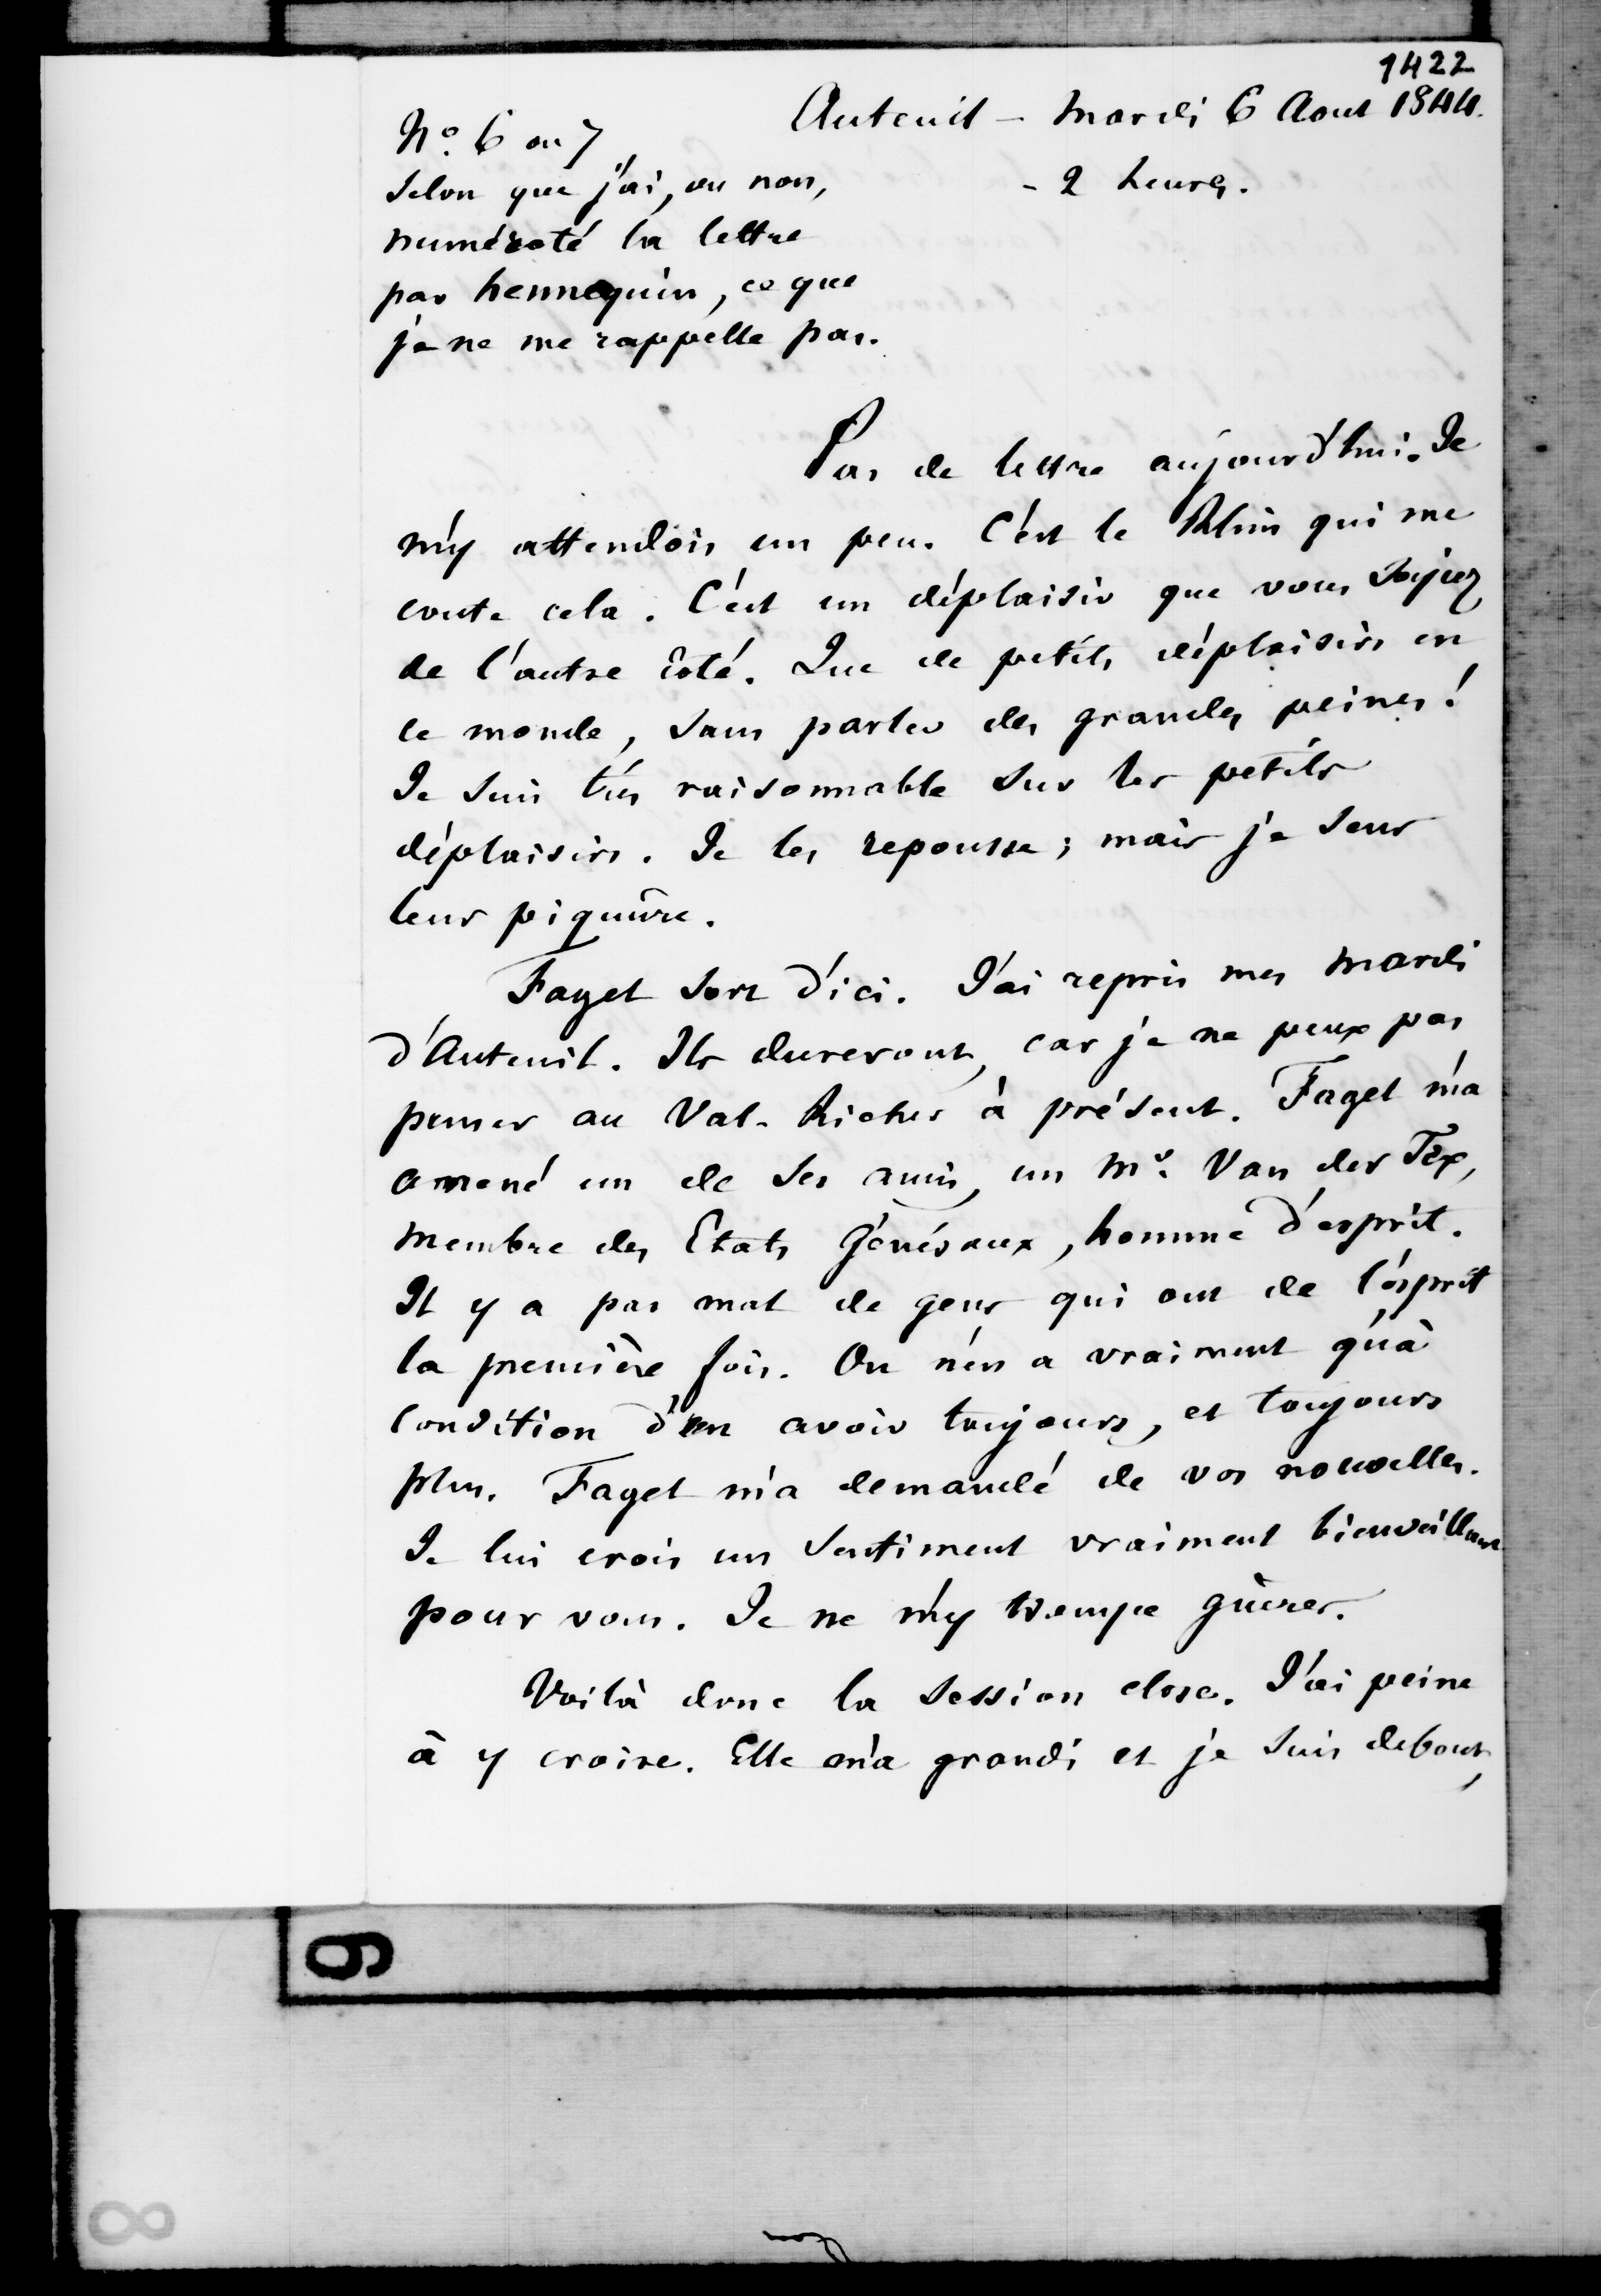 1422
Auteuil - Mardi 6 Aout 1844.
- 2 heures.
No. 6 ou 7
Selon que j'ai, ou non,
numéroté la lettre
par hennequin, ce que
je ne me rappelle pas.
Pas de lettre aujourd'hui. Je
m'y attendois un peu. C'est le Rhin qui me
coute cela. C'est un déplaisir que vous soyiez
de l'autre côté. Que de petits déplaisirs en
ce monde, sans parler des grandes peines !
Je suis très raisonnable sur les petits
déplaisirs. Je les repousse ; mais je sens
leur piquûre.
Fagel sort d'ici. J'ai repris mes mardi
d'Auteuil. Ils dureront, car je ne peux pas
penser au Val-Richer à présent. Fagel m'a
amené un de ses amis, un Mr. Van der Tex,
membre des Etats Généraux, homme d'esprit.
Il y a pas mal de gens qui ont de l'esprit
la première fois. On n'en a vraiment qu'à
condition d'en avoir toujours, et toujours
plus. Fagel m'a demandé de vos nouvelles.
Je lui crois un sentiment vraiment bienveillant
pour vous. Je ne m'y trompe guères.
Voilà donc la session close. J'ai peine
à y croire. Elle m'a grandi et je suis debout,
9
8